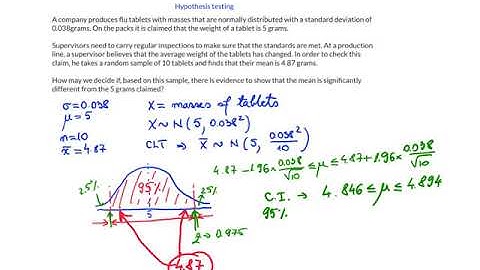 Hypothesis testing
A company produces flu tablets with masses that are normally distributed with a standard deviation of
0.038grams. On the packs it is claimed that the weight of a tablet is 5 grams.
Supervisors need to carry regular inspections to make sure that the standards are met. At a production
line, a supervisor believes that the average weight of the tablets has changed. In order to check this
claim, he takes a random sample of 10 tablets and finds that their mean is 4.87 grams.
How may we decide if, based on this sample, there is evidence to show that the mean is significantly
different from the 5 grams claimed?
σ=0.038
μ=5
n=10
x̄=4.87
X = masses of tablets
X ~ N(5, 0.038²)
CLT → X̄ ~ N(5, 0.038²/10)
4.87-1.96×0.038/√10 ≤ μ ≤ 4.87+1.96×0.038/√10
C.I. → 4.846 ≤ μ ≤ 4.894
95%
2.5%
95%
2.5%
5
2→0.975
4.87